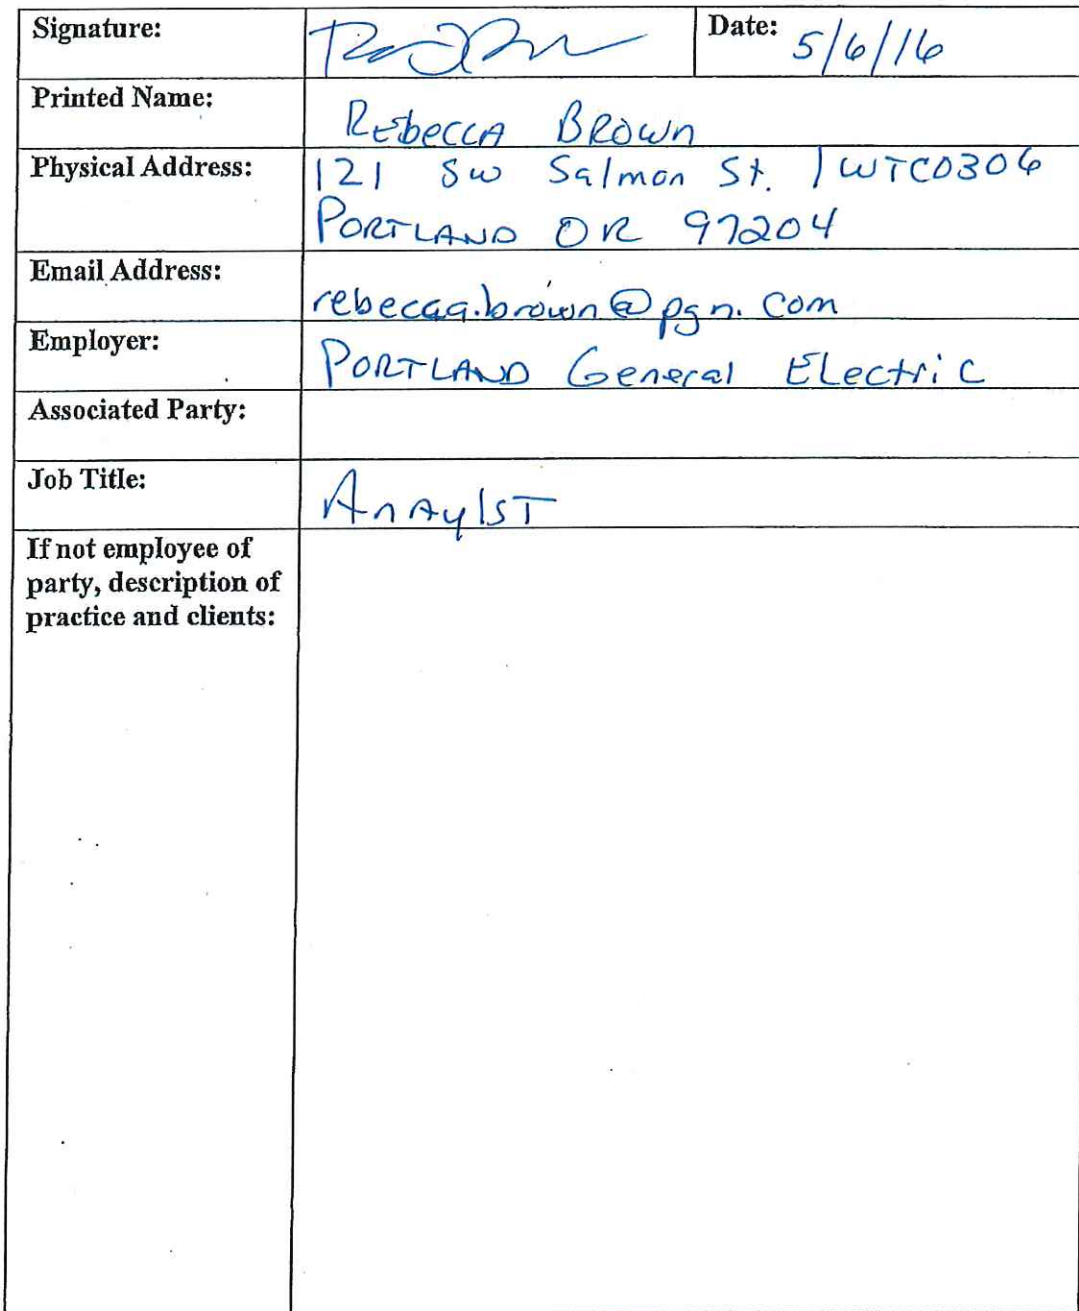 Signature: Date: 5/6/16
Printed Name: REbeccA BROwn
Physical Address: 121 SW Salmon St. 1WTC0306
PORTLAND OR 97204
Email Address: rebecca.brown@pgn.com
Employer: PORTLAND General ELectric
Associated Party:
Job Title: AnAylsT
If not employee of
party, description of
practice and clients: